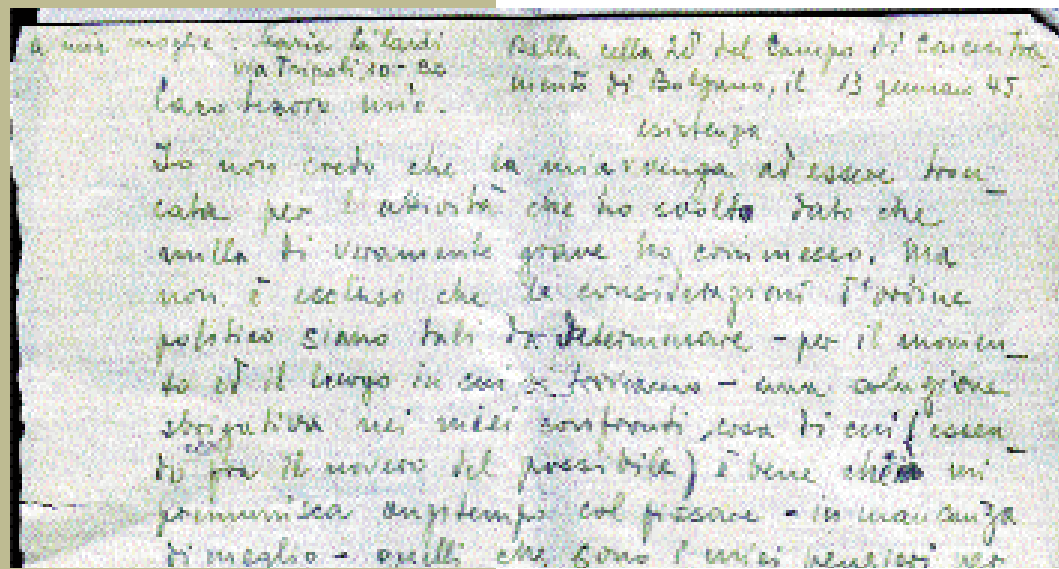 a mia moglie: Maria
via Tripoli, 10 - BZ
Dalla cella 20 del Campo di Concentra_
mento di Bolzano, il 13 gennaio 45.
Caro tesoro mio.
esistenza
Io non credo che la mia venga ad essere tron_
cata per l'attività che ho svolto dato che
nulla di veramente grave ho commesso. Ma
non è escluso che le considerazioni d'ordine
politico siano tali da determinare - per il momen_
to ed il luogo in cui ci troviamo - una soluzione
sbrigativa nei miei confronti, cosa di cui (essen_
do fra il novero del possibile) è bene che mi
premunisca anzitempo col fissare - in mancanza
di meglio - quelli che sono i miei pensieri per